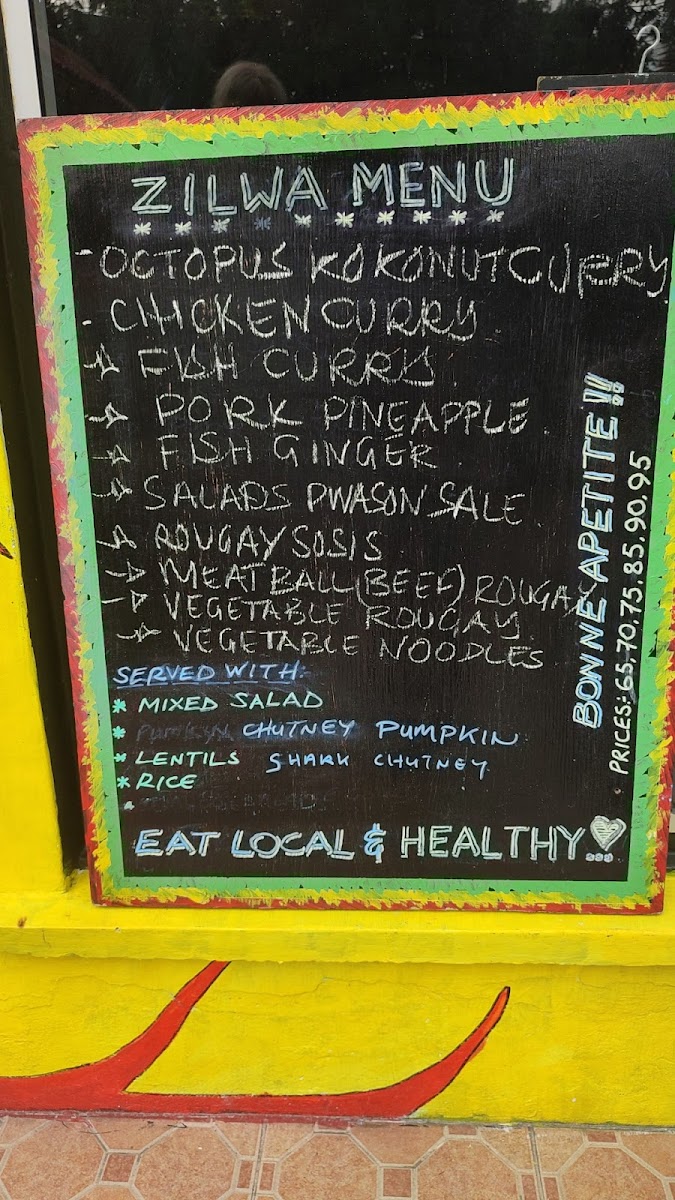 ZILWA MENU
* * * * * * * * *
- OCTOPUS KOKONUT CURRY
- CHICKEN CURRY
☆ FISH CURRY
☆ PORK PINEAPPLE
☆ FISH GINGER
☆ SALADS PWASON SALE
☆ ROUGAY SOSIS
☆ MEATBALL (BEEF) ROUGAY
☆ VEGETABLE ROUGAY
☆ VEGETABLE NOODLES
SERVED WITH:
* MIXED SALAD
* CHUTNEY PUMPKIN
* LENTILS SHARK CHUTNEY
* RICE
EAT LOCAL & HEALTHY...
BONNE APETITE!!
PRICES: 65,70,75,85,90,95